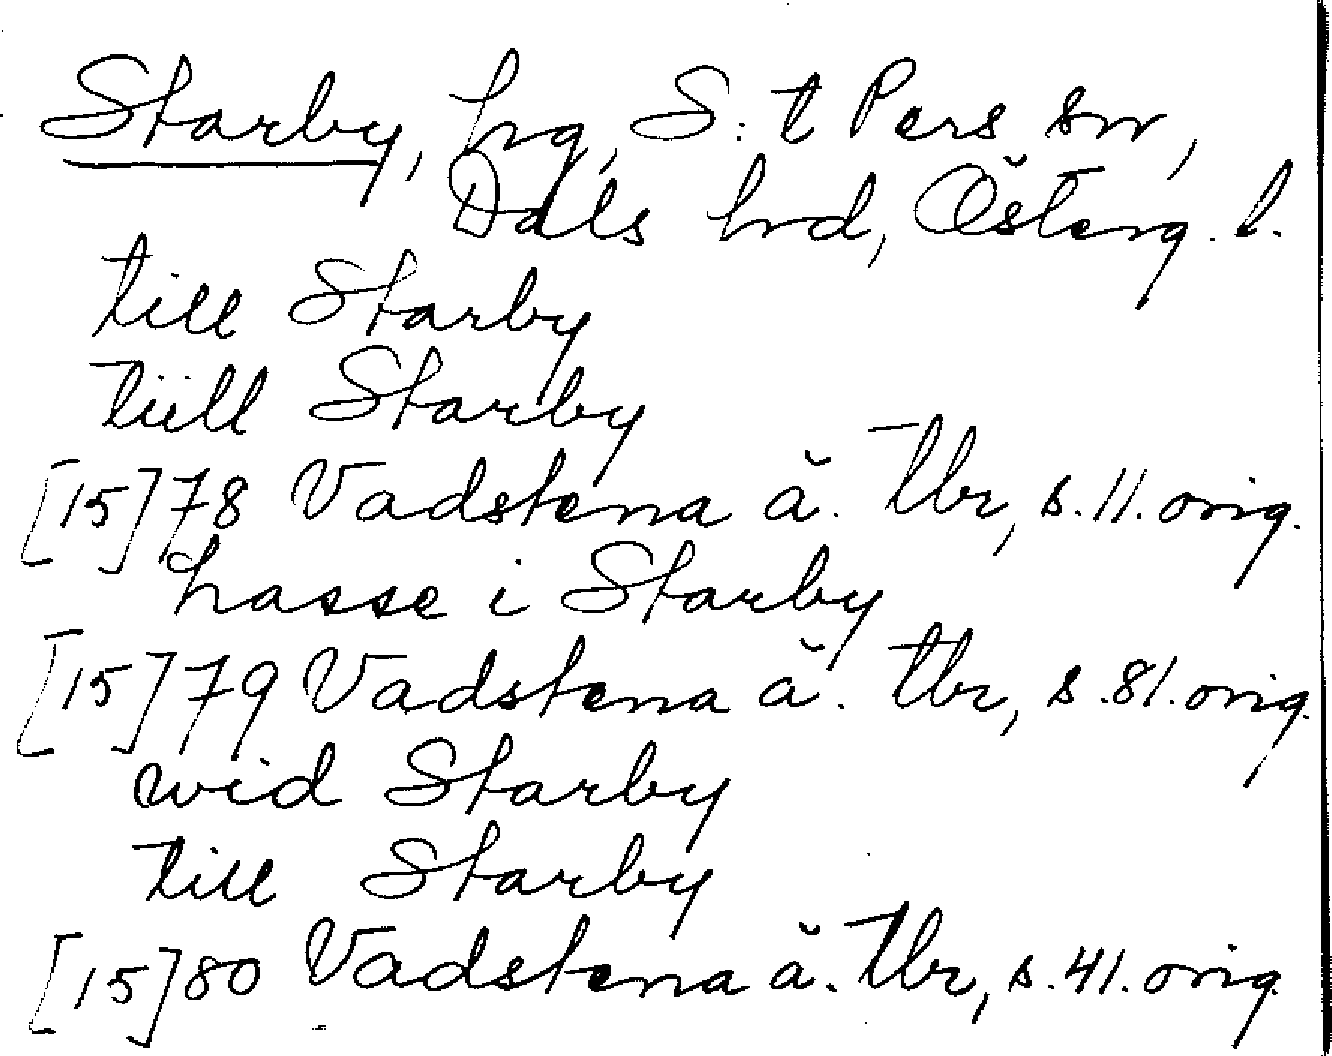 Starby, hg, S:t Pers sn,
Dals hrd, Österg. l.
till Starby
tiill Starby
[15]78 Vadstena ä. tbr, s. 11. orig.
hasse i Starby
[15]79 Vadstena ä. tbr, s. 81. orig.
wid Starby
till Starby
[15]80 Vadstena ä. tbr, s. 41. orig.